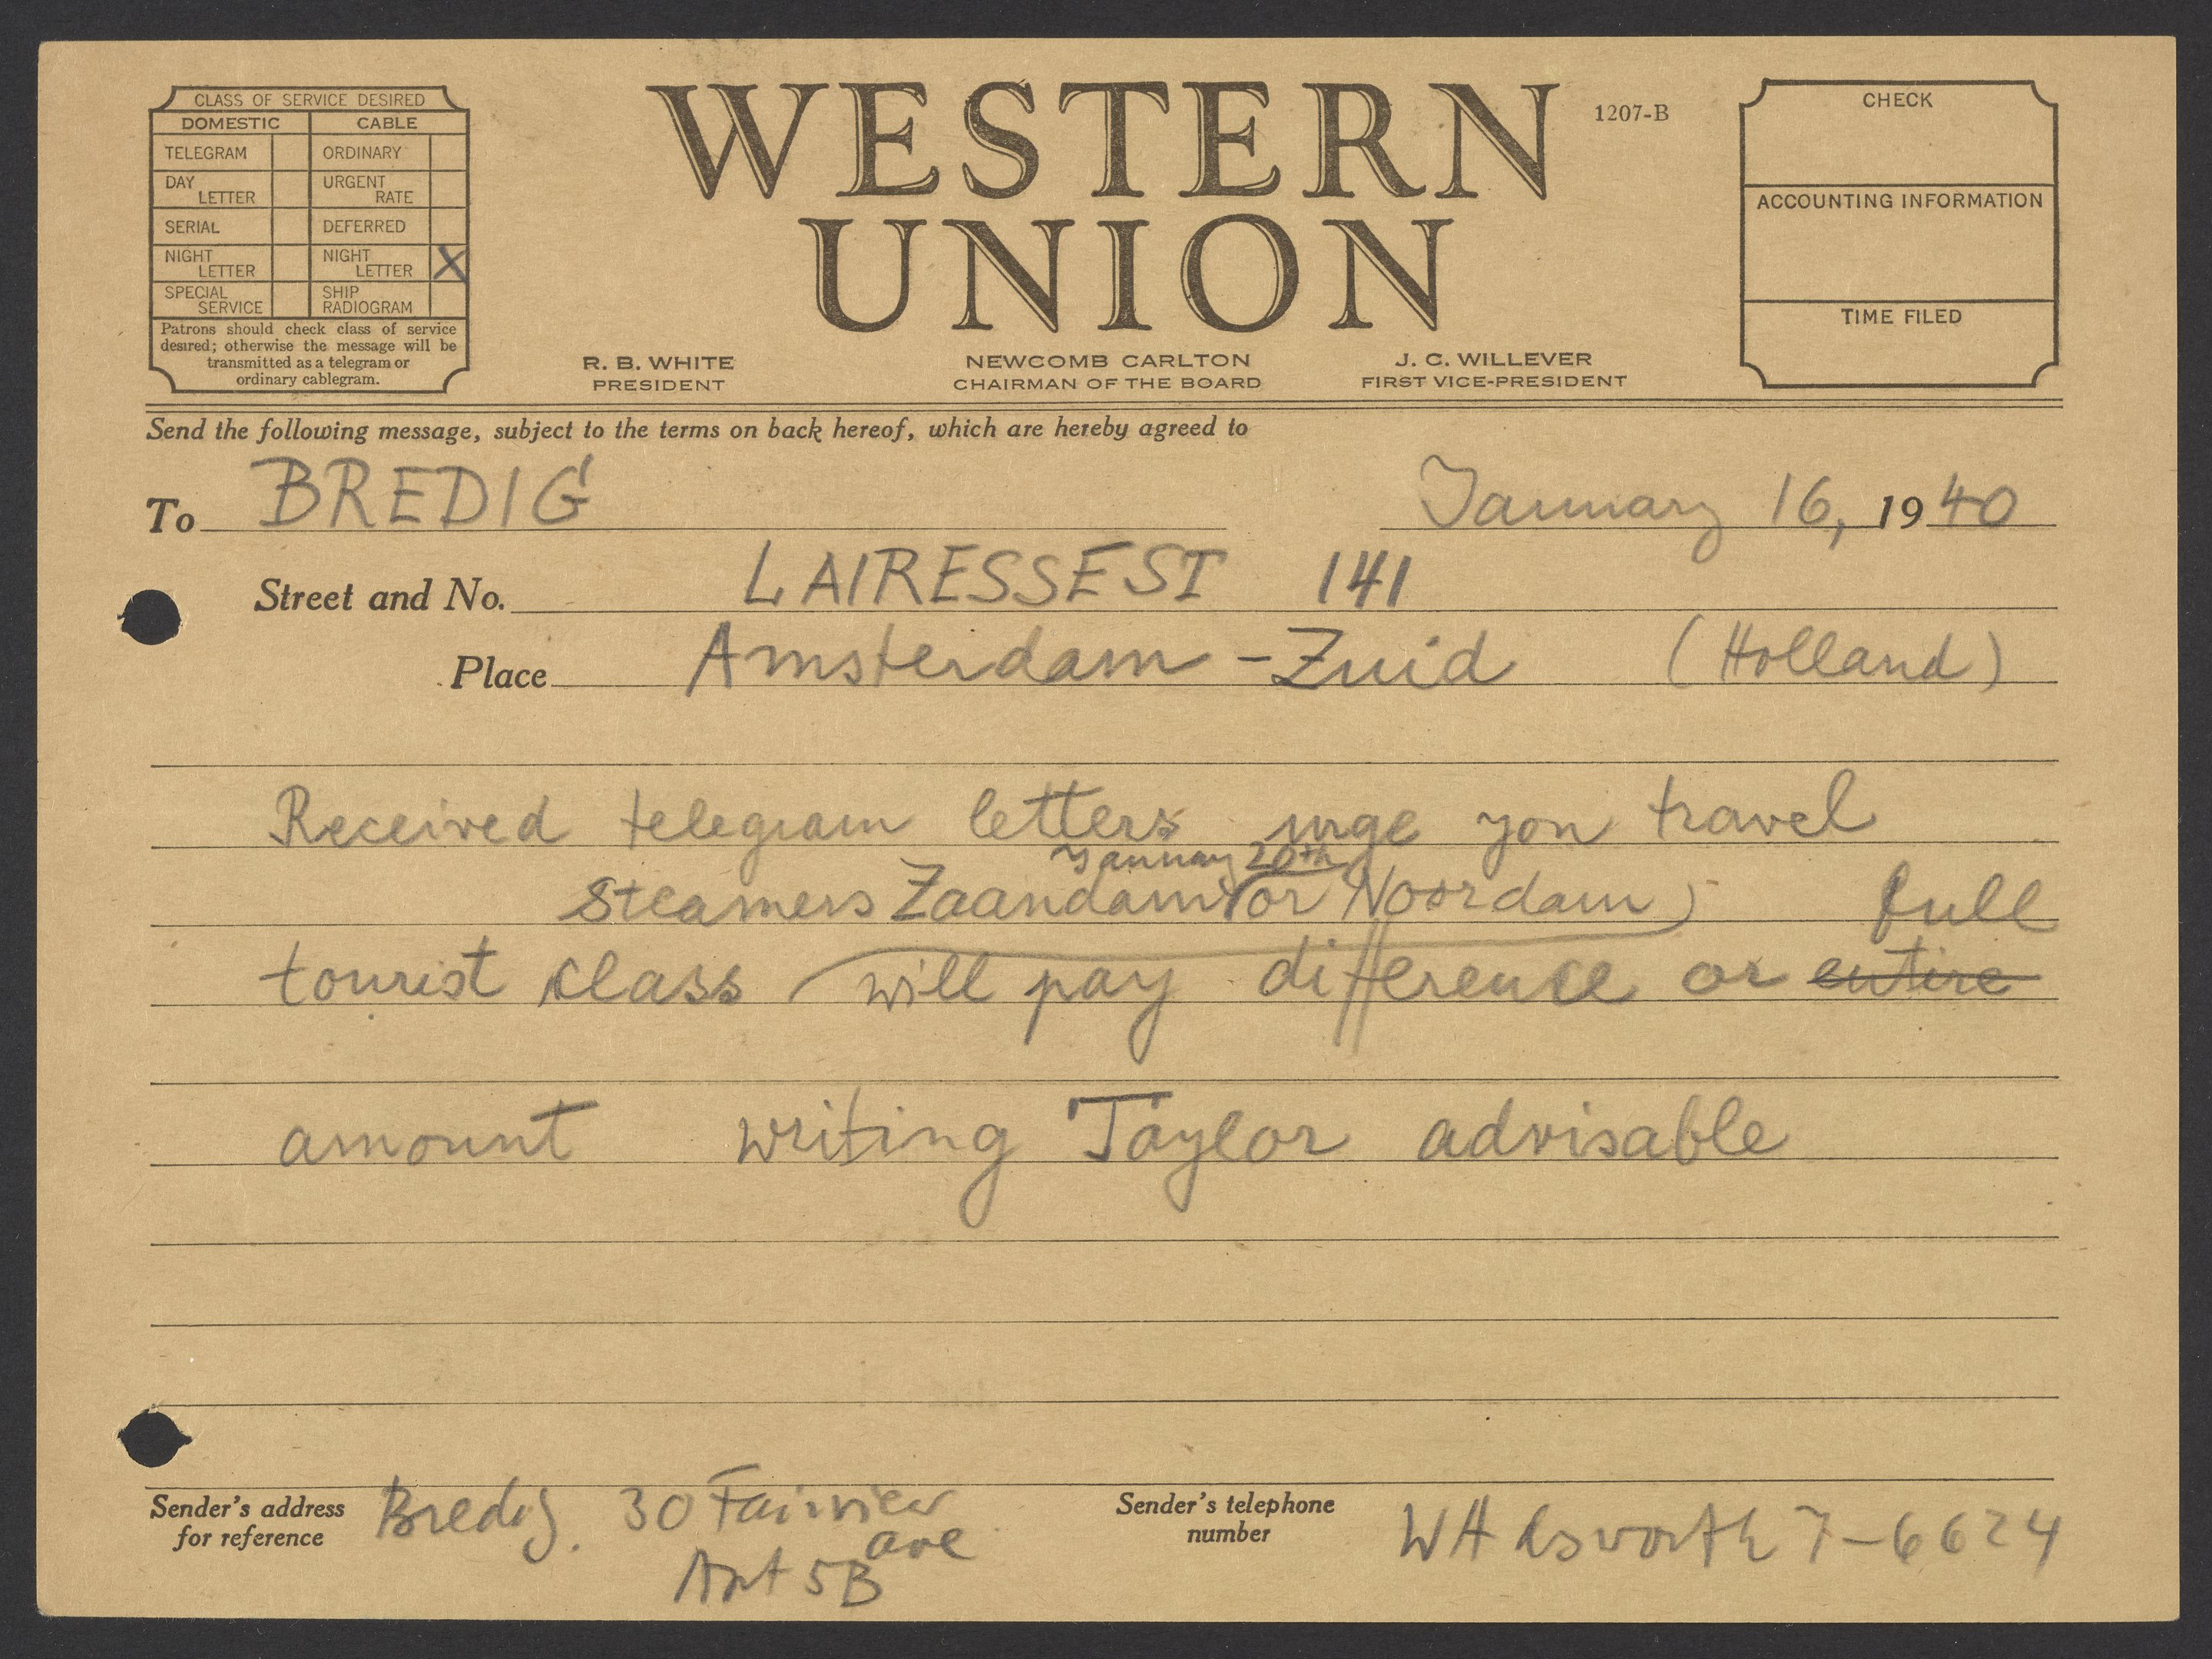 CLASS OF SERVICE DESIRED
DOMESTIC CABLE
TELEGRAM ORDINARY
DAY LETTER URGENT RATE
SERIAL DEFERRED
NIGHT LETTER NIGHT LETTER X
SPECIAL SERVICE SHIP RADIOGRAM
Patrons should check class of service
desired; otherwise the message will be
transmitted as a telegram or
ordinary cablegram.
WESTERN
UNION
1207-B
R. B. WHITE
PRESIDENT
NEWCOMB CARLTON
CHAIRMAN OF THE BOARD
J. C. WILLEVER
FIRST VICE-PRESIDENT
CHECK
ACCOUNTING INFORMATION
TIME FILED
Send the following message, subject to the terms on back hereof, which are hereby agreed to
To BREDIG January 16, 1940
Street and No. LAIRESSEST 141
Place Amsterdam-Zuid (Holland)
Received telegram letters urge you travel
January 20th
Steamers Zaandam (or Noordam) full
tourist class will pay difference or entire
amount writing Taylor advisable
Sender's address
for reference
Bredig. 30 Fairview
ave
Apt 5B
Sender's telephone
number
WAdsworth 7-6624